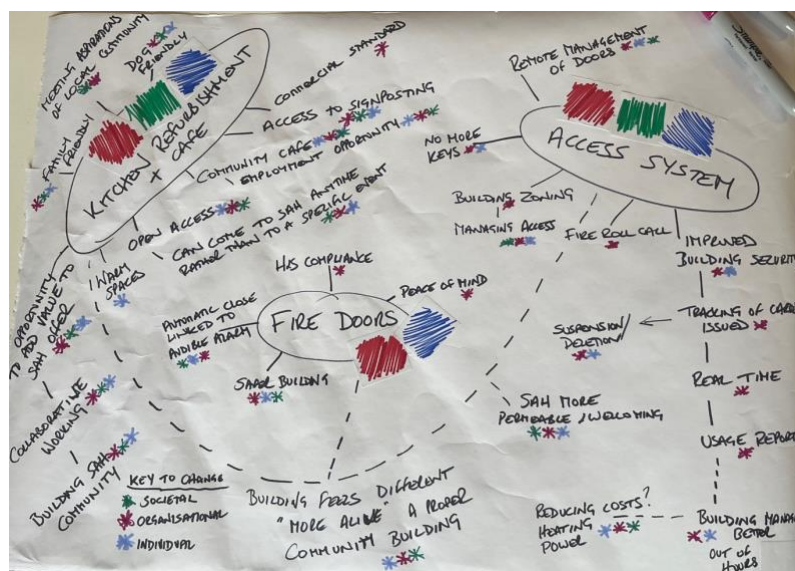 MEETING ASPIRATIONS
OF LOCAL COMMUNITY
DOG
FRIENDLY
FAMILY
FRIENDLY
KITCHEN REFURBISHMENT
+
CAFE
COMMERCIAL STANDARD
ACCESS TO SIGNPOSTING
COMMUNITY CAFE
EMPLOYMENT OPPORTUNITY
OPEN ACCESS
CAN COME TO SAH ANYTIME
RATHER THAN TO A SPECIFIC EVENT
WARM
SPACES
OPPORTUNITY
TO ADD VALUE TO
SAH OFFER
COLLABORATIVE
WORKING
BUILDING SAH
COMMUNITY
H&S COMPLIANCE
PEACE OF MIND
FIRE DOORS
AUTOMATIC CLOSE
LINKED TO
AUDIBLE ALARM
SAFER BUILDING
REMOTE MANAGEMENT
OF DOORS
ACCESS SYSTEM
NO MORE
KEYS
BUILDING ZONING
MANAGING ACCESS
FIRE ROLL CALL
IMPROVED
BUILDING SECURITY
TRACKING OF CARDS
ISSUED
SUSPENSION/
DELETION
REAL TIME
USAGE REPORT
SAH MORE
PERMEABLE & WELCOMING
BUILDING MANAGE
BETTER
OUT OF
HOURS
REDUCING COSTS?
HEATING
POWER
BUILDING FEELS DIFFERENT
"MORE ALIVE" A PROPER
COMMUNITY BUILDING
KEY TO CHANGE
SOCIETAL
ORGANISATIONAL
INDIVIDUAL